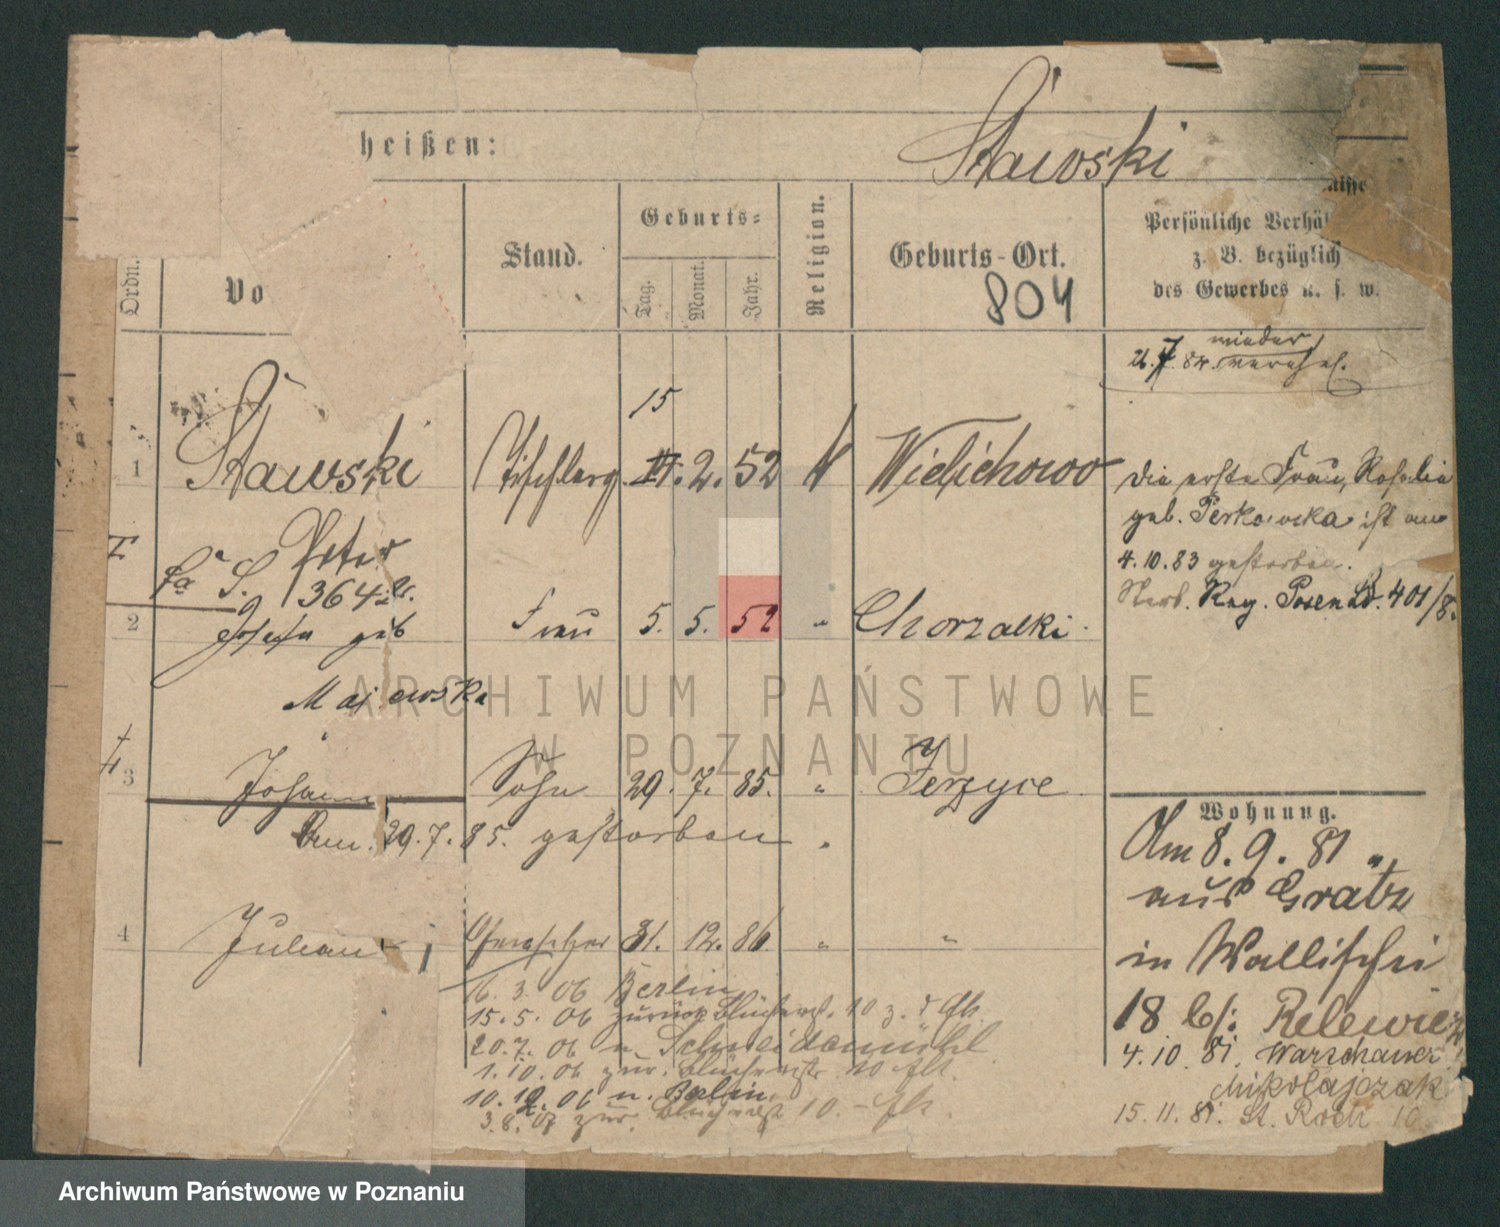 heißen: Stawski
Ordn. Vo Stand. Geburts= Religion. Geburts-Ort. Persönliche Verhäl
Tag. Monat. Jahr. z. B. bezüglich
des Gewerbes u. s. w.
804
21.7.84. wieder
15
1 Stawski Tischlerg. 2. 52 k Wielichowo die erste Frau, Rosalia
Peter geb. Perkowska ist am
364 4.10.83 gestorben.
Sterb. Reg. Posen 401/8
2 Josefa geb Frau 5. 5. 52 " Chorzalki
Majewska
3 Johann Sohn 29. 7. 85. " Jerzyce
Wohnung.
29.7.85. gestorben
Am 8.9.81
aus Grätz
4 Julian 31. 12. 86. " "
in Wallischei
16.3.06 Berlin
15.5.06 zurück 10
18 b/: Relewicz
20.7.06 n. Schneidemühl
4.10.81. Warschauer
1.10.06 zur. 10
Mikolajczak
10.12.06 n. Berlin
3.8.07 zur. 10.
15.11.81. St. Roch 10
ARCHIWUM PAŃSTWOWE
W POZNANIU
Archiwum Państwowe w Poznaniu